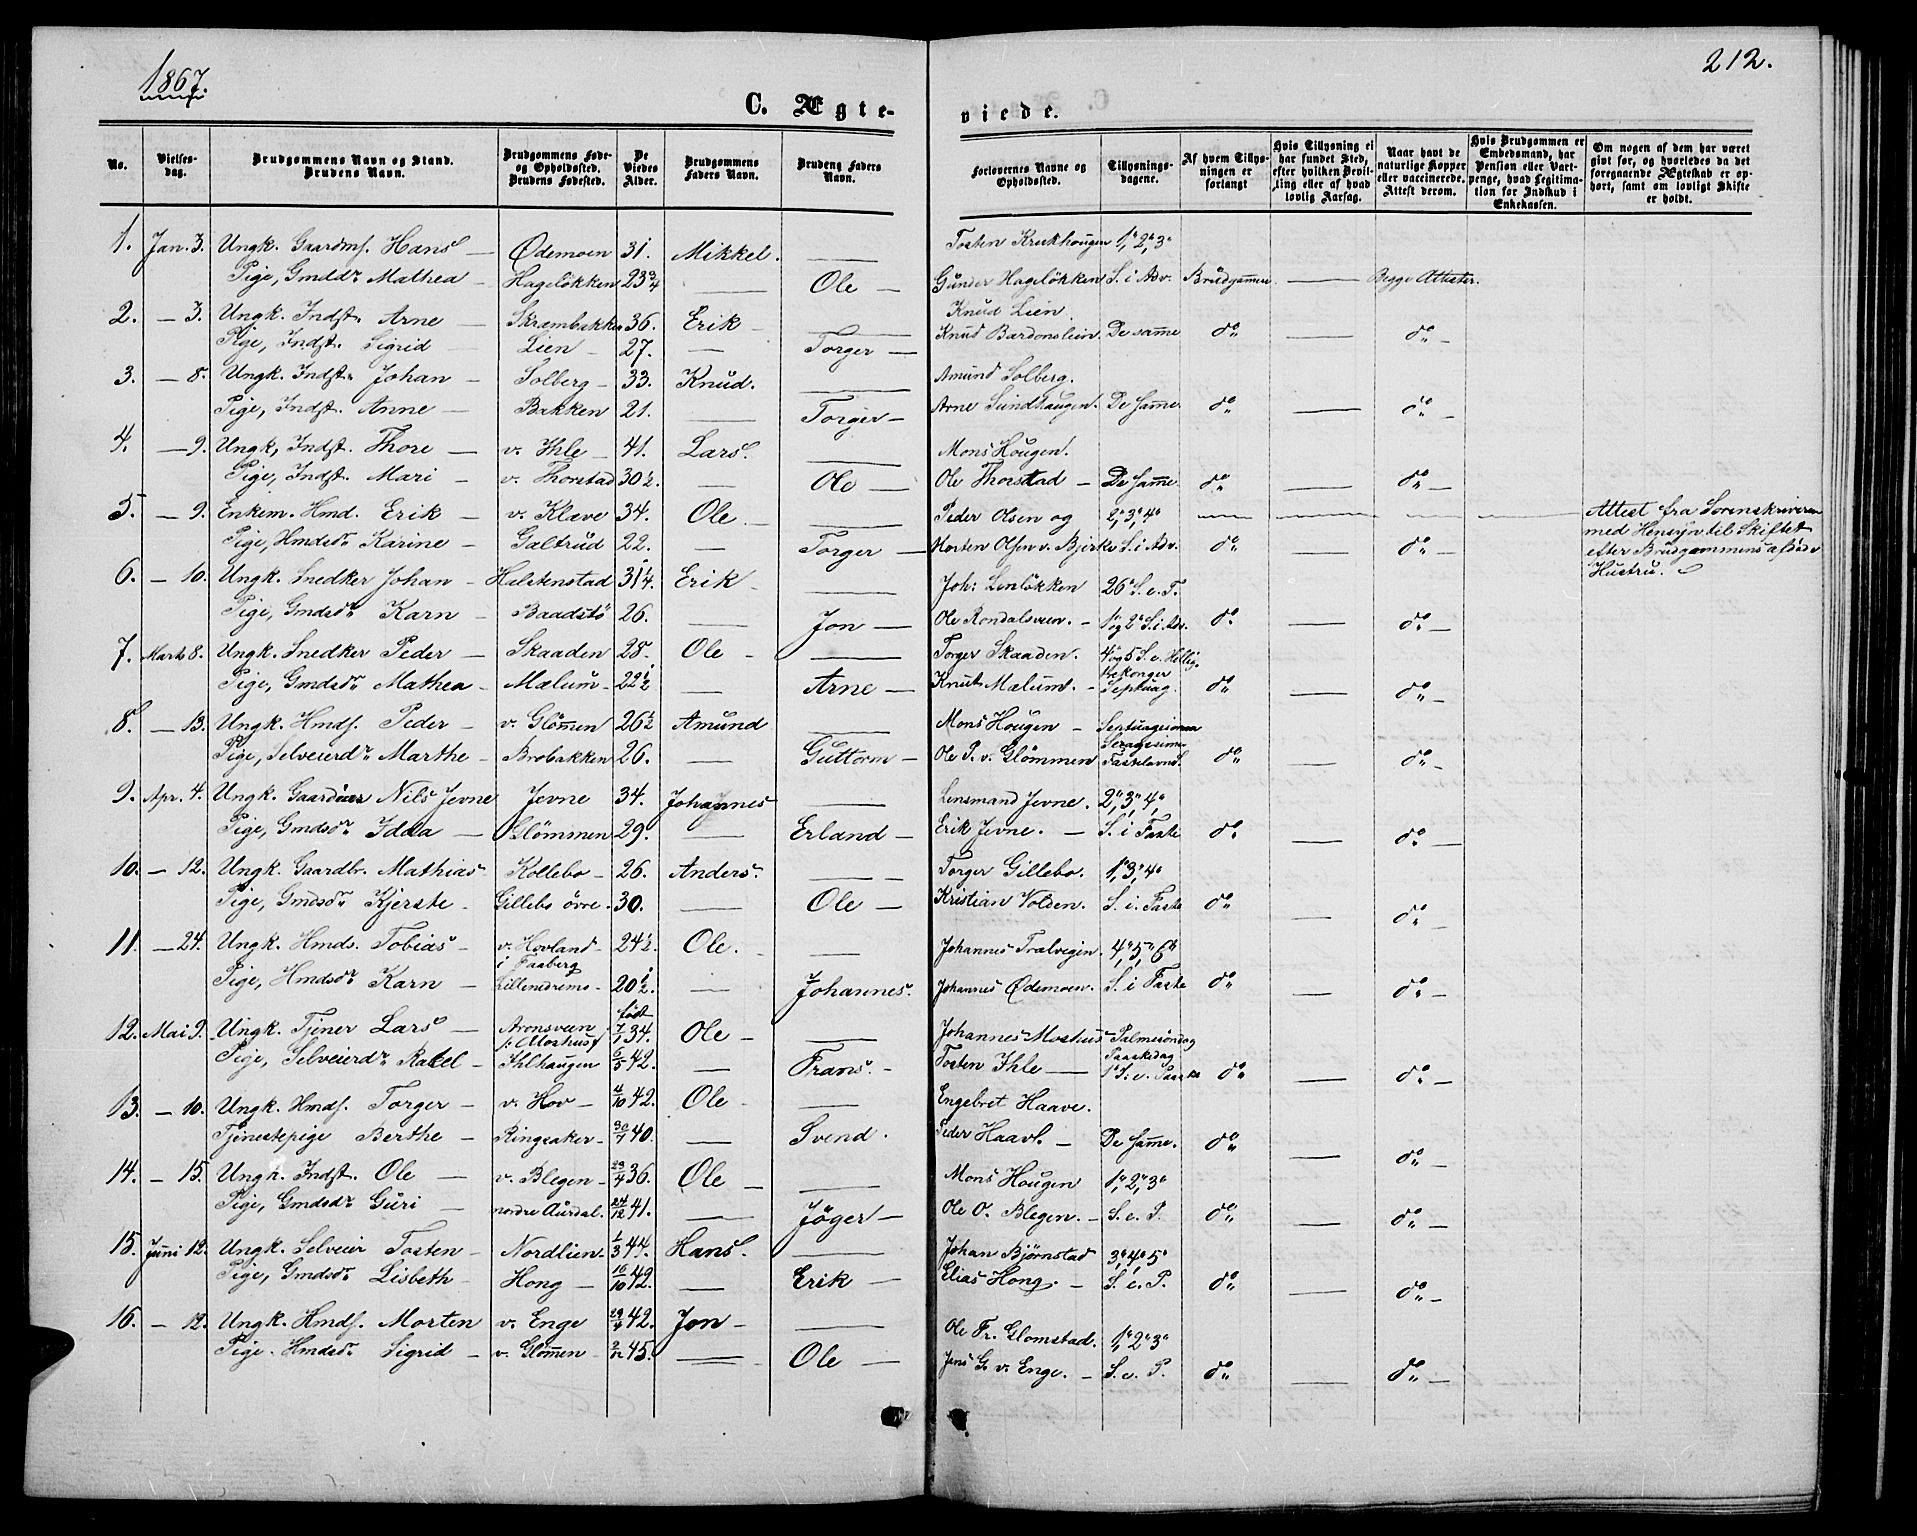 1867.
212.
C. Ægte-
viede.
No.
Vielses-
dag.
Brudgommens Navn og Stand.
Brudens Navn.
Brudgommens Føde-
og Opholdssted.
Brudens Fødested.
De
Viedes
Alder.
Brudgommens
Faders Navn.
Brudens Faders
Navn.
Forlovernes Navne og
Opholdssted.
Tillysnings-
dagene.
Af hvem Tillys-
ningen er
forlangt
Hvis Tillysning ei
har fundet Sted,
efter hvilken Bevil-
ling eller af hvad
lovlig Aarsag.
Naar havt de
naturlige Kopper
eller vaccinerede.
Attest derom.
Hvis Brudgommen er
Embedsmand, har
Pension eller Vart-
penge, hvad Legitima-
tion for Indskud i
Enkekassen.
Om nogen af dem har været
givt før, og hvorledes da det
foregaaende Ægteskab er op-
hørt, samt om lovligt Skifte
er holdt.
1. Jan. 3. Ungk. Gaardms. Hans — Ødemoen 31. Mikkel. — Tosten Krukhougen 1", 2", 3"
Pige, Gmddr Mathea — Hageløkken 23 3/4 — Ole — Gunder Hageløkken S. i Adv. Brudgommen. — Begge Attester.
2. — 3. Ungk. Indst. Arne — Skrambakken 36. Erik — Knud Lien.
Pige, Indst. Sigrid Lien — 27. — Torger — Knud Bardonslien. De samme do — do —
3. — 8. Ungk. Indst. Johan — Solberg — 33. Knud. — Amund Solberg.
Pige, Indst. Anne — Bakken 21. — Torger — Arne Sundhaugen. De samme. do — do —
4. — 9. Ungk, Indst. Thore — v. Ihle — 41. Lars. — Mons Hougen.
Pige, Indst. Mari — v. Thorstad 30 1/2. — Ole — Ole Thorstad — De samme. do — do —
5. — 9. Enkem. Hmd. Erik — v. Klæve 34. Ole. — Peder Olsen og 2", 3", 4" Attest fra Sorenskriveren
Pige, Hmdsdr Karine — Galtrud 22. — Torger — Morten Olsen v. Bjirke S. i Adv. do — do — med Hensyn til Skiftet
efter Brudgommens afdøde
Hustru.
6. — 10. Ungk. Snedker Johan — Helstenstad 31 1/4. Erik — Joh: Lenløkken 26" S. e. T.
Pige, Gmdsdr Karn — Baadstø 26. — Jon — Ole Rondalsveen. — 1 og 2" S. i Adv. do — do —
7. Marts 8. Ungk. Snedker Peder — Skaaden — 28. Ole — Torger Skaaden. 4 og 5 S. e. Hellig-
trekonger
Pige, Gmdsdr Mathea — Mælum — 22 1/2 — Arne — Knut Mælum. — Septuag. do — do —
8. — 13. Ungk. Hmds. Peder — v. Glom̄en 26 1/2 Amund — Mons Hougen — Septuagesima
Sexagesima
Pige, Selveierdr Marthe — Brobakken 26. — Guttorm — Ole P. v. Glömmen Fastelavns. do — do —
9. Apr. 4. Ungk. Gaardmr Nils Jevne Jevne 34. Johannes — Lensmand Jevne. 2", 3", 4",
Pige, Gmdsdr Idda — Glömmen 29. — Erland — Erik Jevne. — S. i Faste do — do —
10. — 12. Ungk. Gaardbr. Mathias Kollebo — 26. Anders. — Torger Gillebo. 1", 3", 4"
Pige, Gmdsdr Kjerste — Gillebo øvre — 30. — Ole — Kristian Volden. S. i. Faste do — do —
11. — 24. Ungk. Hmds. Tobias — v. Hovland — 24 1/2. Ole. — Johannes Trælvegin. 4", 5", 6"
i Faaberg
Pige, Hmdsdr Karn — 20 1/2. — Johannes. Johannes Ødemoen. S. i Faste do — do —
født
12. Mai 9. Ungk. Tjener Lars — Aronsveen 7/1 34. Ole — Johannes Moshus — Palmesøndag
/: Moshus/ Paaskedag
Pige, Selveierdr Rakel — Ihlhaugen 6/5 42. — Frans. — Tosten Ihle — 1" S. e. Paaske do — do —
13. — 10. Ungk. Hmds. Torger — v. Hov — 4/10 42. Ole — Engebret Haave.
Tjenestepige Berthe — Ringsaker — 30/7 40. — Svend. Peder Haavl. — De samme. do — do —
14. — 15. Ungk. Indst. Ole — v. Blegen — 23/4 36. Ole — Mons Hougen 1", 2", 3"
Pige, Gmdsdr Guri — nordre Aurdal. 24/12 41. — Jøger — Ole O. Blegen. — S. e. P. do — do —
15. Juni 12. Ungk. Selveier Tosten — Nordlien. 1/3 44. Hans. — Johan Bjørnstad 3", 4", 5"
Pige, Gmdsdr Lisbeth — Hong — 16/10 42. — Erik — Elias Hong. — S. e. P. do — do —
16. — 12. Ungk. Hmds. Morten v. Enge 29/4 42. Jon — Ole Fr. Glomstad. 1", 2" 3"
Pige. Hmdsdr Sigrid — v. Glom̄en — 45. — Ole — Jens G. v. Enge. — S. e. P. do — do —